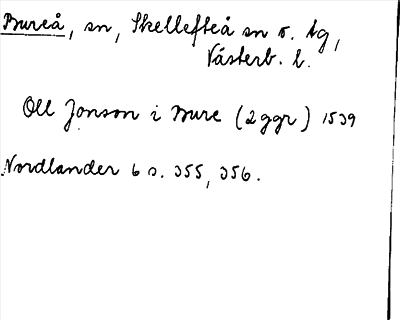 Bureå, sn, Skellefteå sn o. tg,
Västerb. l.
Oll Jonson i Bure (2 ggr) 1539
Nordlander 6 s. 355, 356.